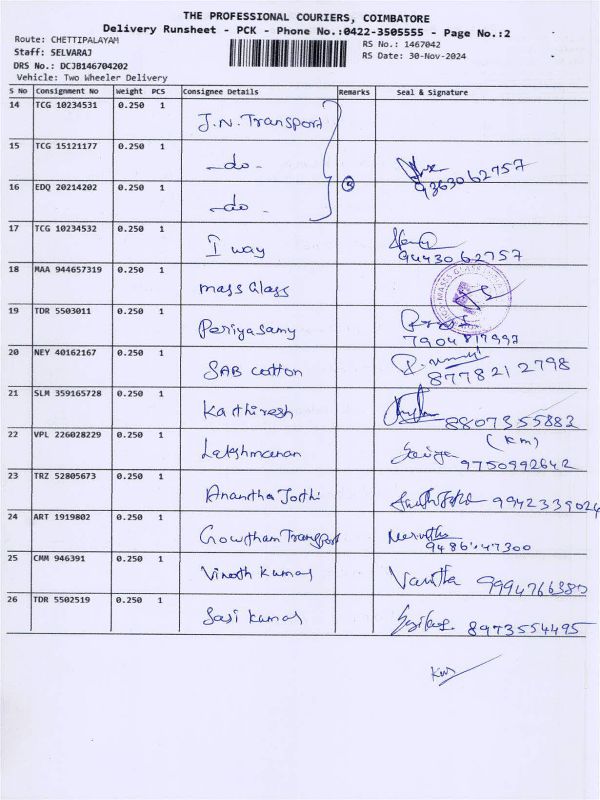 THE PROFESSIONAL COURIERS, COIMBATORE
Delivery Runsheet - PCK - Phone No.:0422-3505555 - Page No.:2
Route: CHETTIPALAYAM
RS No.: 1467042
Staff: SELVARAJ
RS Date: 30-Nov-2024
DRS No.: DCJB146704202
Vehicle: Two Wheeler Delivery
S No Consignment No Weight PCS Consignee Details Remarks Seal & Signature
14 TCG 10234531 0.250 1 J.N. Transport
15 TCG 15121177 0.250 1 -do-
9363062757
16 EDQ 20214202 0.250 1 -do-
17 TCG 10234532 0.250 1 I way
9443062757
18 MAA 944657319 0.250 1 mass Glass
19 TDR 5503011 0.250 1 Periyasamy
7904817997
20 NEY 40162167 0.250 1 SAB cotton
8778212798
21 SLM 359165728 0.250 1 Kathiresh 8807355882
22 VPL 226028229 0.250 1 Lakshmanan (KM)
9750992642
23 TRZ 52805673 0.250 1 Anantha Jothi 9942339024
24 ART 1919802 0.250 1 Gowtham Transport
25 CMM 946391 0.250 1 Vinoth Kumar Vanitha 9994766380
26 TDR 5502519 0.250 1 Sasi kumar 8973554495